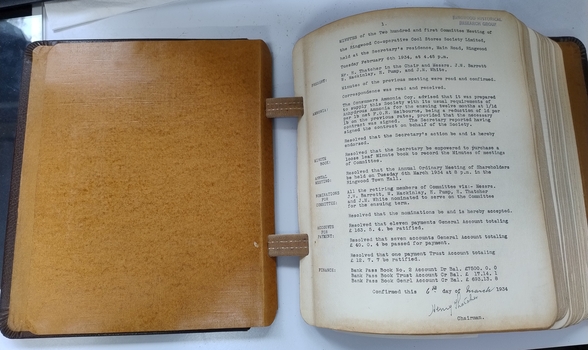 RINGWOOD HISTORICAL
RESEARCH GROUP
1.
MINUTES of the Two Hundred and First Committee Meeting of
the Ringwood Co-operative Cool Stores Society Limited,
held at the Secretary's residence, Main Road, Ringwood
Tuesday February 6th 1934, at 4.45 p.m.
Mr. H. Thatcher in the Chair and Messrs. J.W. Barrett
W. Mackinlay, E. Pump, and J.N. White.
MINUTES: Minutes of the previous meeting were read and confirmed.
Correspondence was read and received.
The Consumers Ammonia Coy. advised that it was prepared
to supply this Society with its usual requirements of
Anhydrous Ammonia for the ensuing twelve months at 1/14
per lb net F.O.R. Melbourne, being a reduction of 1d per
lb on the previous rates, provided that the necessary
contract was signed. The Secretary reported having
signed the contract on behalf of the Society.
Resolved that the Secretary's action be and is hereby
endorsed.
MINUTE BOOK: Resolved that the Secretary be empowered to purchase a
loose leaf Minute book to record the Minutes of meetings
of Committee.
ANNUAL MEETING: Resolved that the Annual Ordinary Meeting of Shareholders
be held on Tuesday 6th March 1934 at 8 p.m. in the
Ringwood Town Hall.
NOMINATIONS FOR COMMITTEE: All the retiring members of Committee viz:- Messrs.
J.W. Barrett, W. Mackinlay, E. Pump, H. Thatcher
and J.N. White nominated to serve on the Committee
for the ensuing term.
Resolved that the nominations be and is hereby accepted.
ACCOUNTS FOR PAYMENT: Resolved that eleven payments General Account totaling
£ 163. 5. 4. be ratified.
Resolved that seven accounts General Account totaling
£ 40. 0. 4 be passed for payment.
Resolved that one payment Trust Account totaling
£ 18. 7. 7 be ratified.
FINANCE: Bank Pass Book No. 2 Account Dr Bal. £7500. 0. 0
Bank Pass Book Trust Account Cr Bal. £ 17.14. 1
Bank Pass Book Genrl Account Cr Bal. £ 693.13. 8
Confirmed this 6th day of March 1934
Henry Thatcher
Chairman.